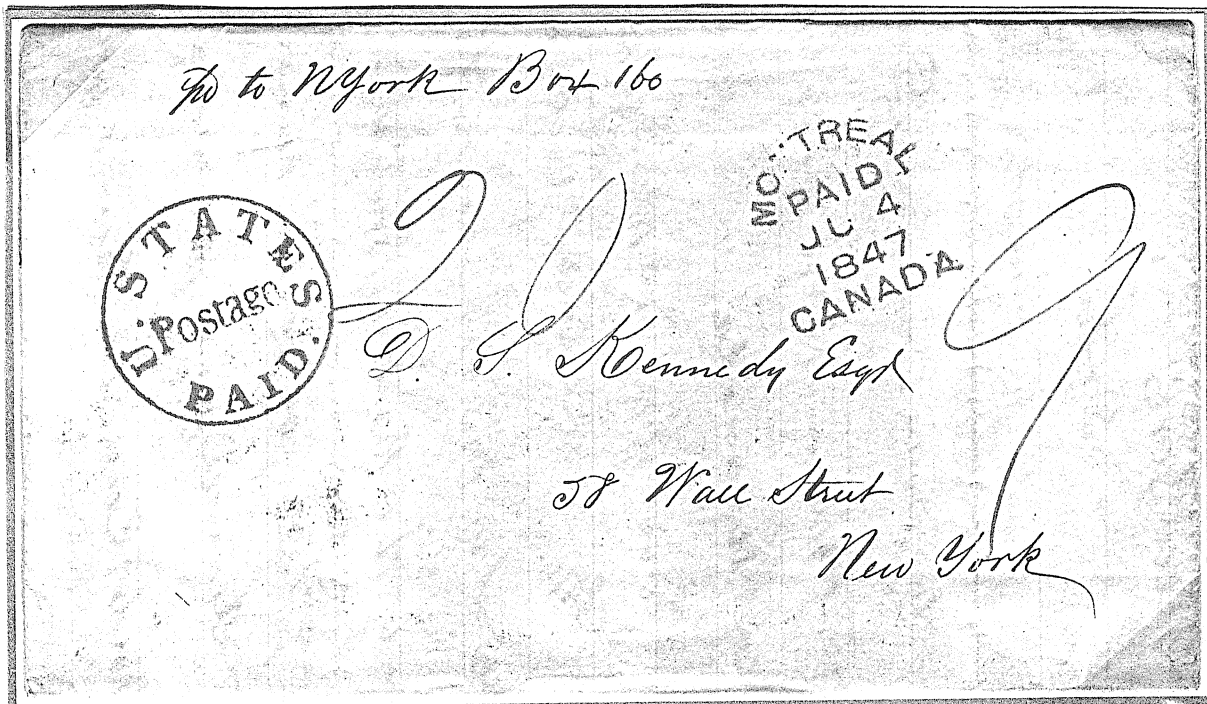 pd to NYork Box 160
U. STATES
Postage
PAID.
20
MONTREAL
PAID
4
1847
CANADA
9
D. S. Kennedy Esqr
58 Wall Street
New York